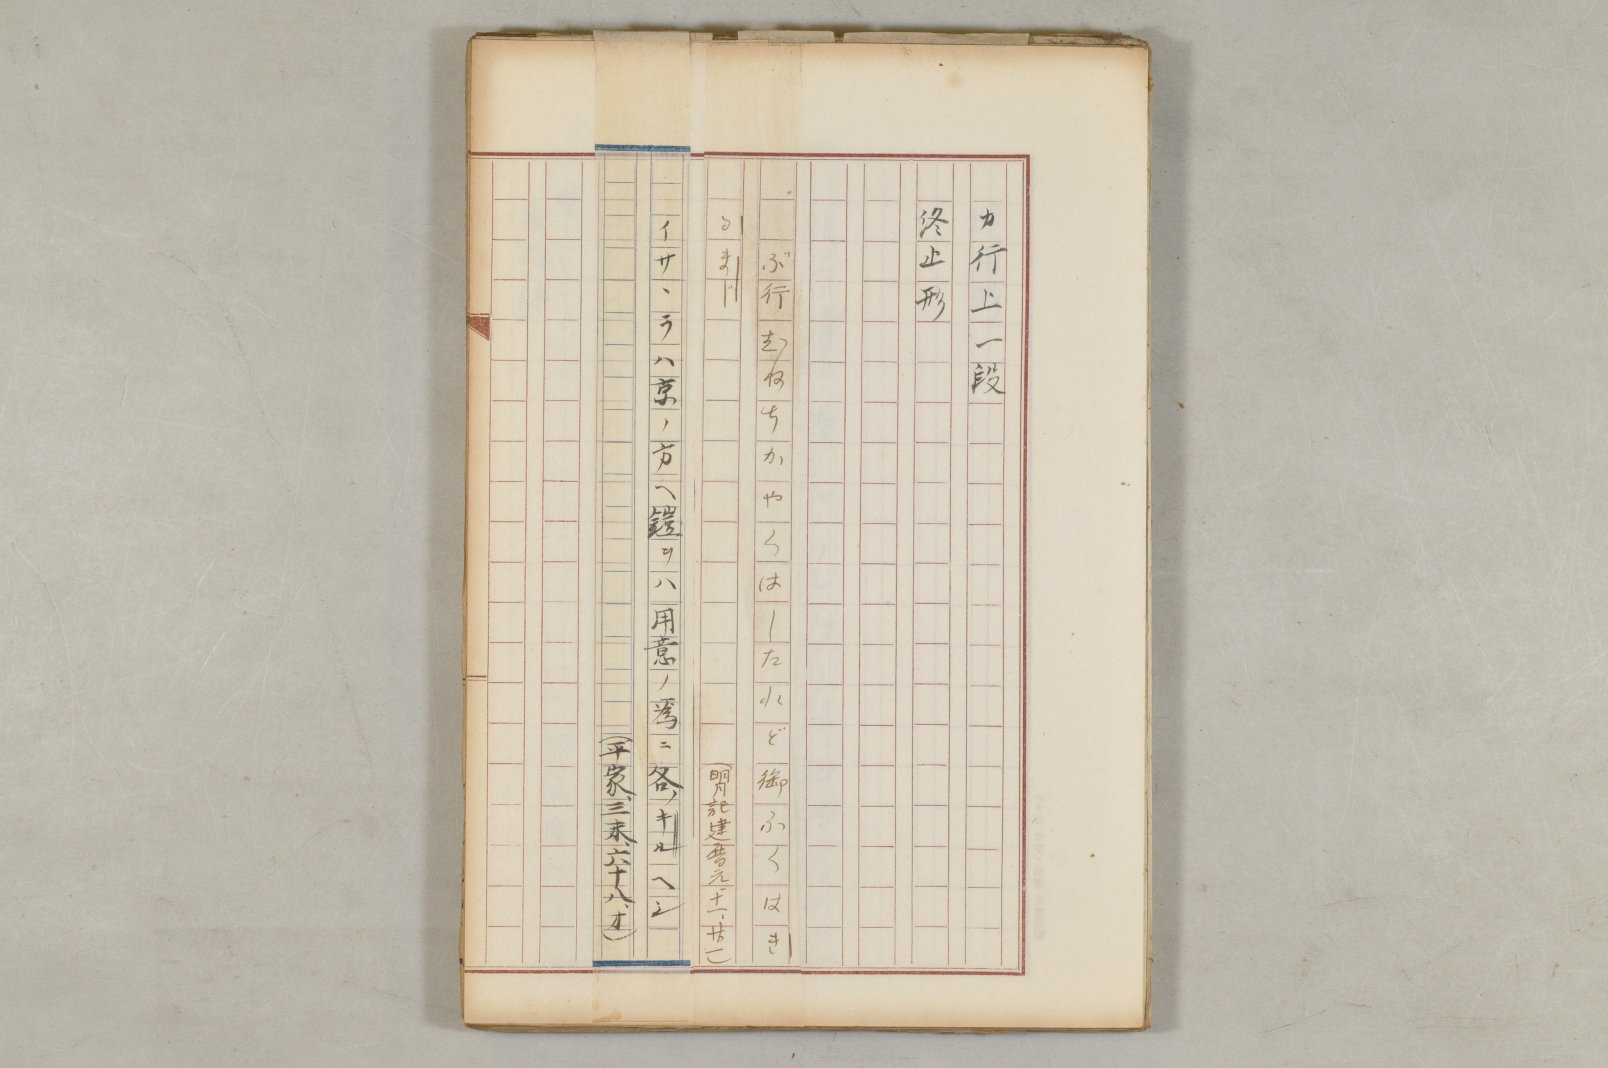 カ行上一段
終止形
ぶ行むねちかやくはしたれど御ふくはき
るまじ
(明月記建暦元、十一、廿一)
イサヽラハ京ノ方ヘ鎧ヲハ用意ノ為ニ各ノキルヘシ
(平家、三末、六十八、オ)